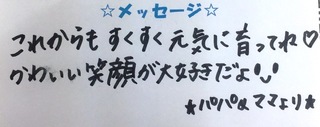 ☆メッセージ☆
これからもすくすく元気に育ってね♡
かわいい笑顔が大好きだよ
★パパ&ママより★